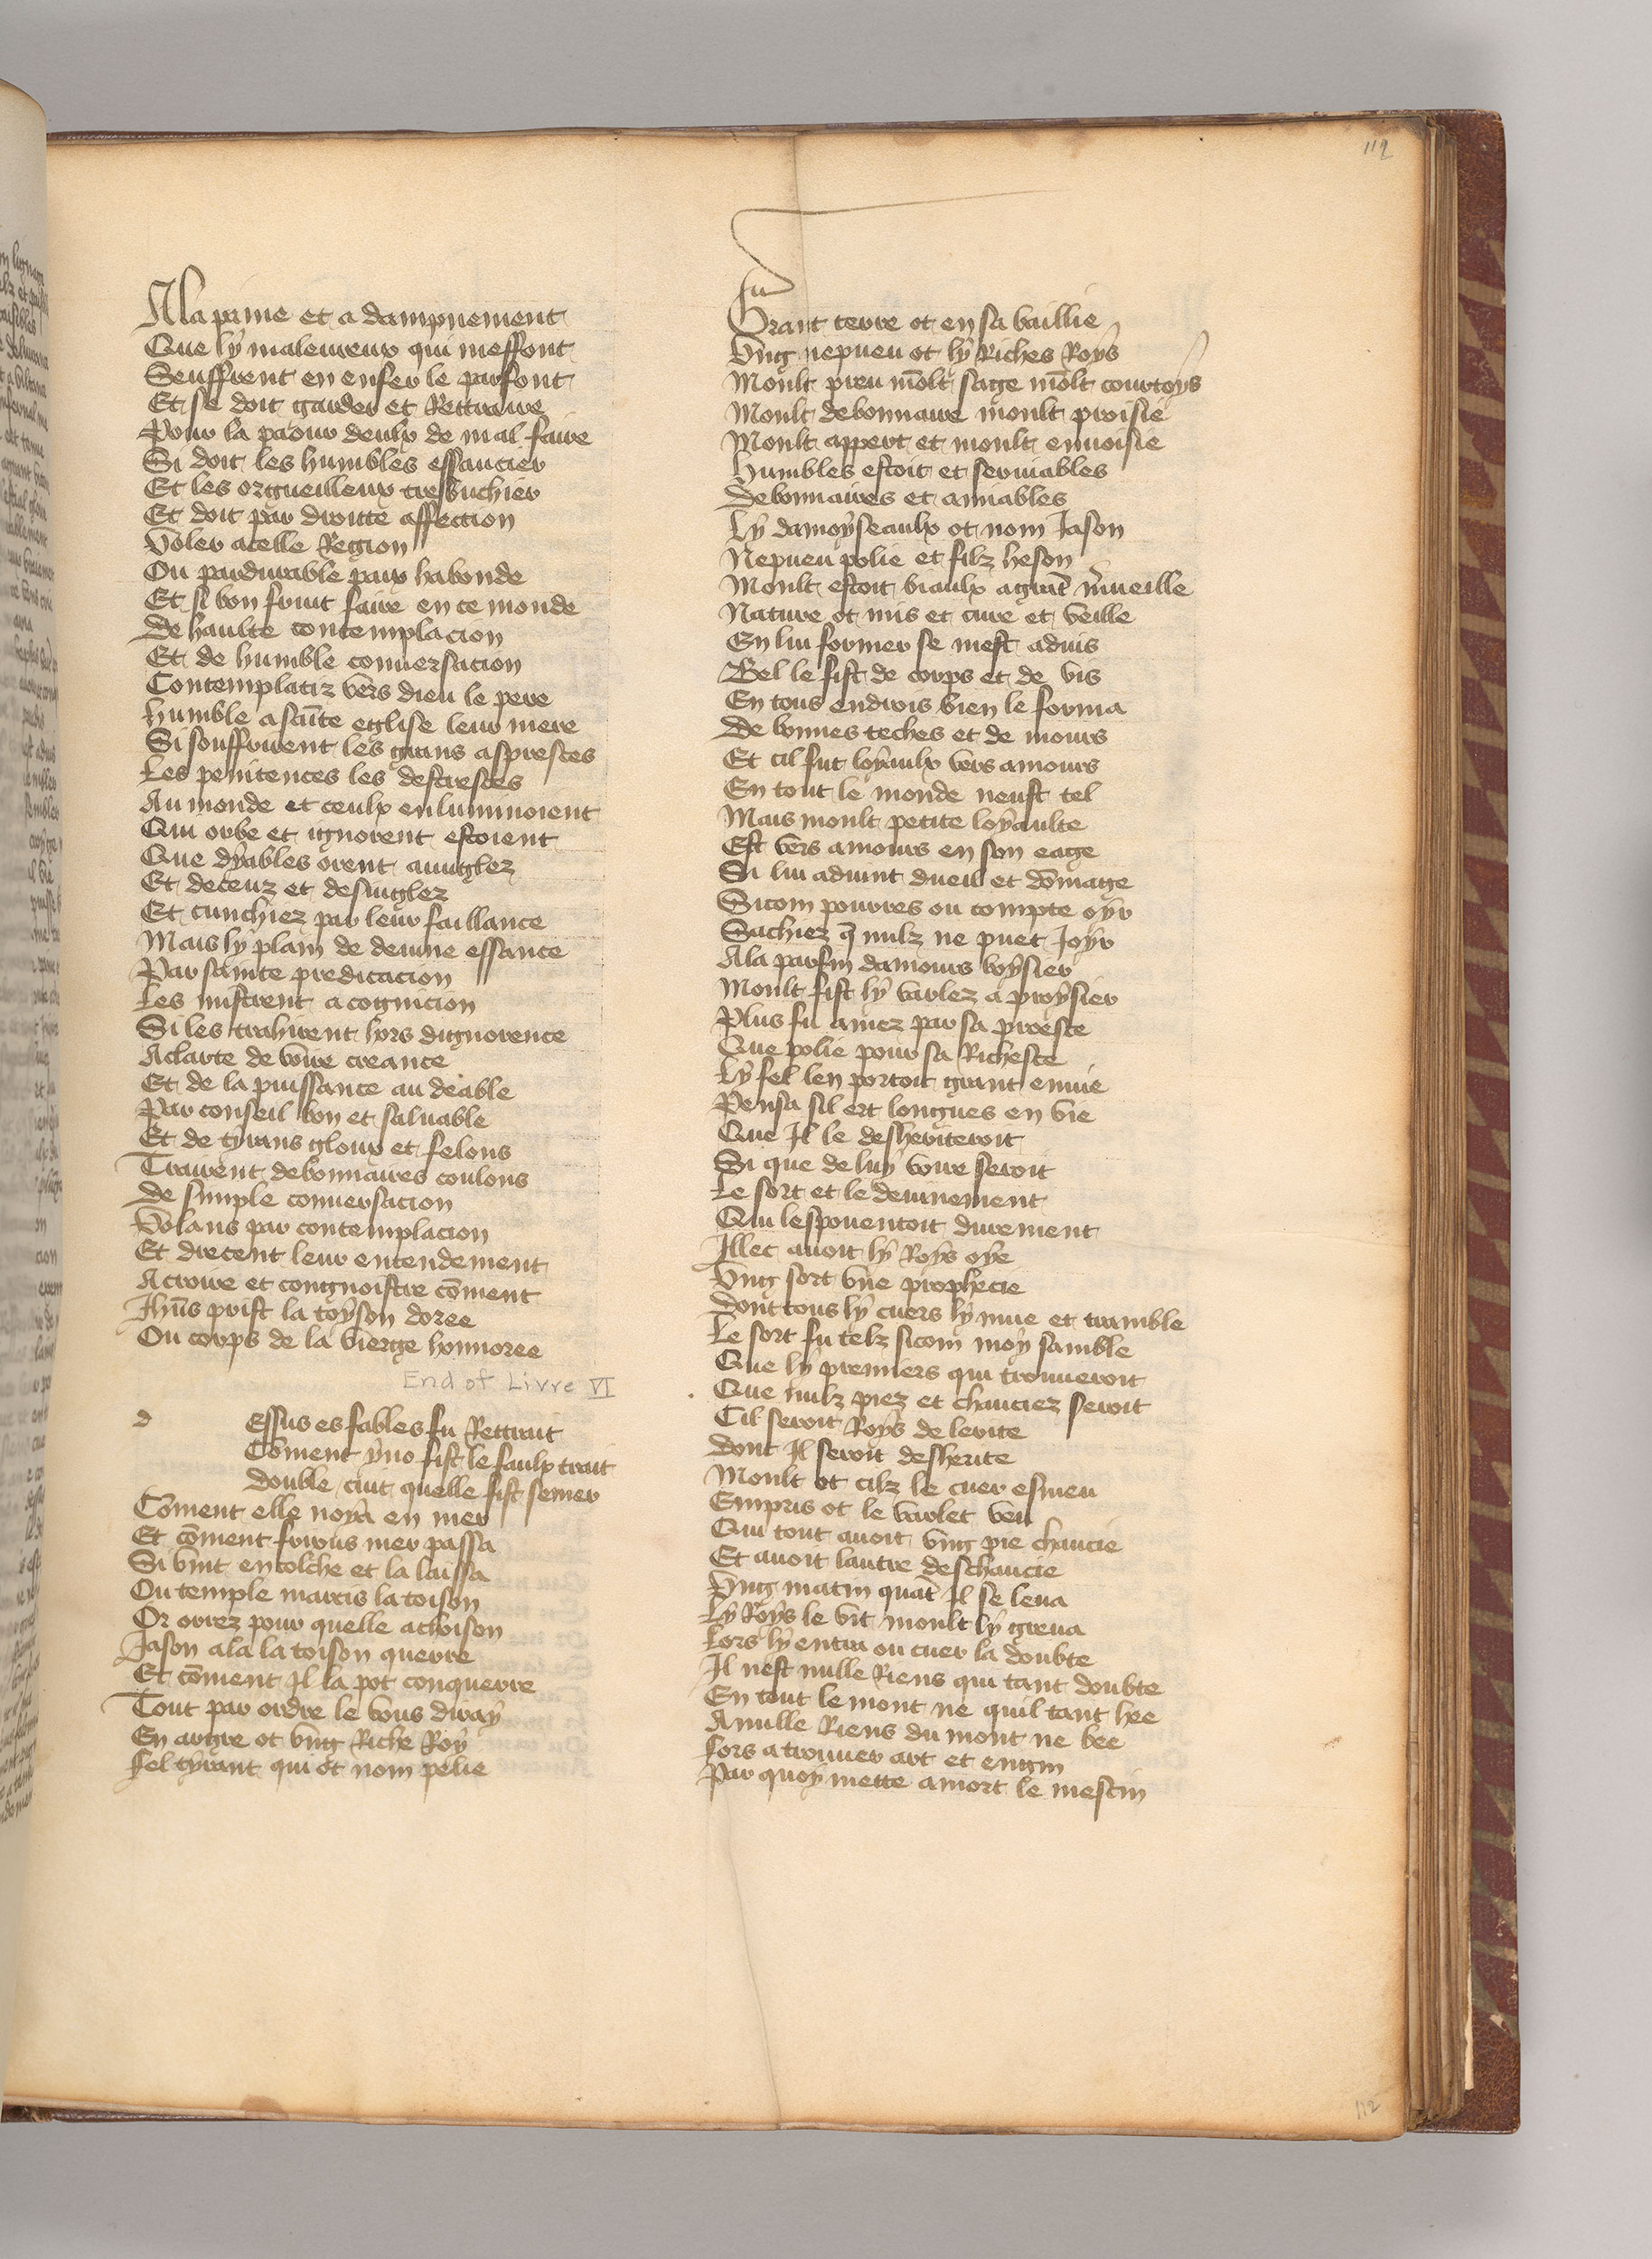 112
A la paine et a dampnement
Que ly maleureux qui meffont
Seuffrent en enfer le parfont
Et se doit garder et Rettraire
Pour la paour deulx de mal faire
Si doit les humbles essaucier
Et les orgueilleux tresbuchier
Et doit par droitte affection
Voler acelle Region
Ou pardurable paix habonde
Et si bon fruit faire en ce monde
De haulte contemplacion
Et de humble conuersacion
Contemplatiz vers dieu le pere
Humble a saīte eglise leur mere
Si souffrirent les grans asprestes
Les penitences les destrestes
Au monde et ceulx enluminoient
Qui orbe et ignorent estoient
Que dyables orent auuglez
Et deceuz et desuiglez
Et cunchiez par leur faillance
Mais ly plain de deuine essance
Par sainte predicacion
Les mistrent a cognicion
Si les trahirent hors dignorence
A clarte de voire creance
Et de la puissance au deable
Par conseil bon et saluable
Et de tyrans gloux et felons
Trairent debonnaires coulons
De simple conuersacion
Volans par contemplacion
Et drecent leur entendement
A croire et congnoistre cōment
Jhūs prist la toyson doree
Ou corps de la vierge honnoree
End of Livre VI
d essus es fables fu Rettrait
Cōment yno fist le faulx trait
Double cuit quelle fist semer
Cōment elle noya en mer
Et cōment frixus mer passa
Si vint en colche et la laissa
Ou temple martis la toison
Or orrez pour quelle achoison
Jason ala la toison querre
Et cōment Il la pot conquerre
Tout par ordre le vous diray
En argre ot vng Riche Roy
Fel tyrant qui ot nom pelie
fu
Grant terre ot en sa baillie
Vng nepueu ot ly Riches Roys
Moult preu mōlt sage mōlt courtoys
Moult debonnaire moult proisie
Moult appert et moult enuoisie
Humbles estoit et seruiables
Debonnaires et amiables
Ly damoyseaulx ot nom Jason
Nepueu polie et filz heson
Moult estoit biaulx a grāt m̄ueille
Nature ot mis et cure et veille
En lui former se mest aduis
Bel le fist de corps et de vis
En tous endrois bien le forma
De bonnes teches et de mours
Et cil fut loyaulx vers amours
En tout le monde neust tel
Mais moult petite loyaulte
Est vers amours en son eage
Si lui aduint dueil et dōmage
Sicom pourres ou compte oyr
Sachiez q̄ nulz ne puet Joyr
A la parfin damours boysier
Moult fist ly varlez a proysier
Plus fu amez par sa proeste
Que polie pour sa Richeste
Ly fel len portoit grant enuie
Pensa sil ert longues en vie
Que Il le desheriteroit
Si que de luy voire seroit
Le sort et le deuinement
Qui lespouentoit durement
Illec auoit ly Roys oye
Vng sort vne prophecie
Dont tous ly cuers ly mue et tramble
Le sort fu telz sicom moy samble
Que ly premiers qui trouueroit
Que nulz piez et chauciez seroit
Cil seroit Roys de lerite
Dont Il seroit desherite
Moult ot cilz le cuer esmeu
Empris ot le varlet veu
Qui tout auoit vng pie chaucie
Et auoit lautre deschaucie
Vng matin quāt Il se leua
Ly Roys le vit moult ly greua
Lors ly entra ou cuer la doubte
Il nest nulle Riens qui tant doubte
En tout le mont ne quil tant hee
A nulle Riens du mont ne bee
Fors a trouuer art et engin
Par quoy mette a mort le meschin
112